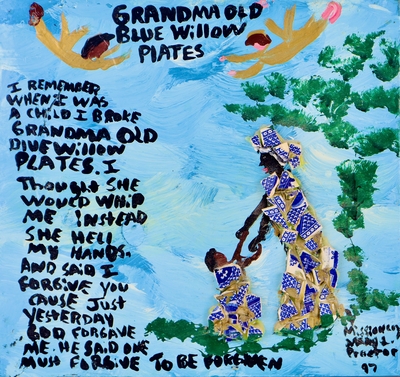 GRANDMA OLD
BLUE WILLOW
PLATES
I REMEMBER
WHEN I WAS
A CHILD I BROKE
GRANDMA OLD
DIUE WILLOW
PLATES. I
THOUGHT SHE
WOULD WHIP
ME INSTEAD
SHE HELL
MY HANDS.
AND SAID I
FORGIVE YOU
CAUSE JUST
YESTERDAY
GOD FORGAVE
ME. HE SAID ONE
MUST FORGIVE TO BE FORGIVEN
MISSIONARY
MARY L
PROCTOR
97